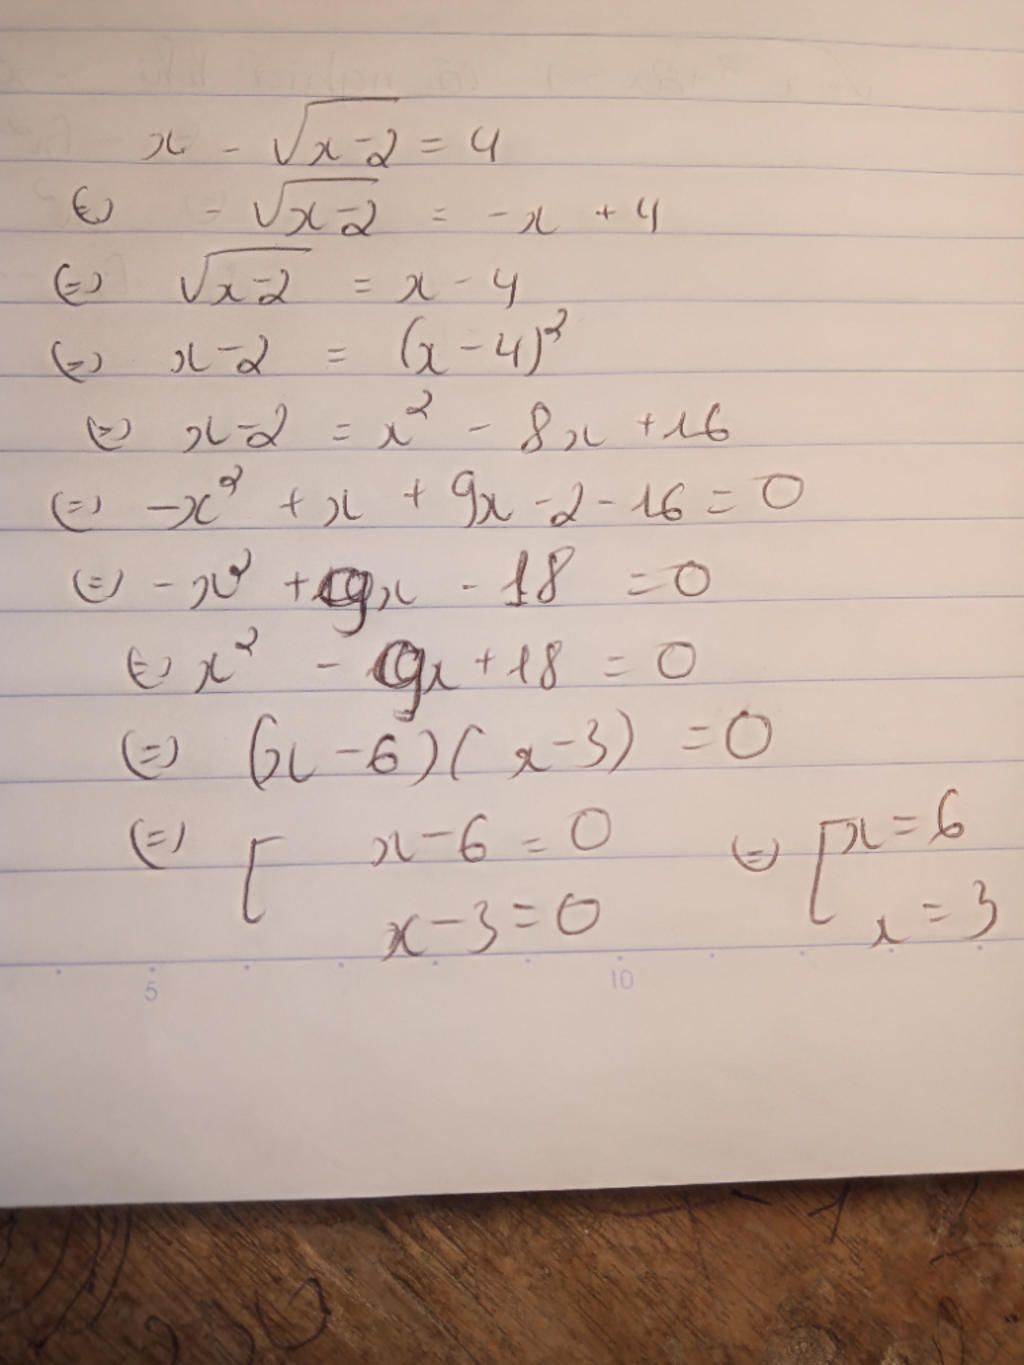 x - √(x-2) = 4
(=) - √(x-2) = -x + 4
(=) √(x-2) = x - 4
(=) x-2 = (x-4)²
(=) x-2 = x² - 8x + 16
(=) -x² + x + 9x - 2 - 16 = 0
(=) -x² + 9x - 18 = 0
(=) x² - 9x + 18 = 0
(=) (x-6)(x-3) = 0
(=) [ x-6 = 0 (=) [ x = 6
x-3 = 0 x = 3
5 10